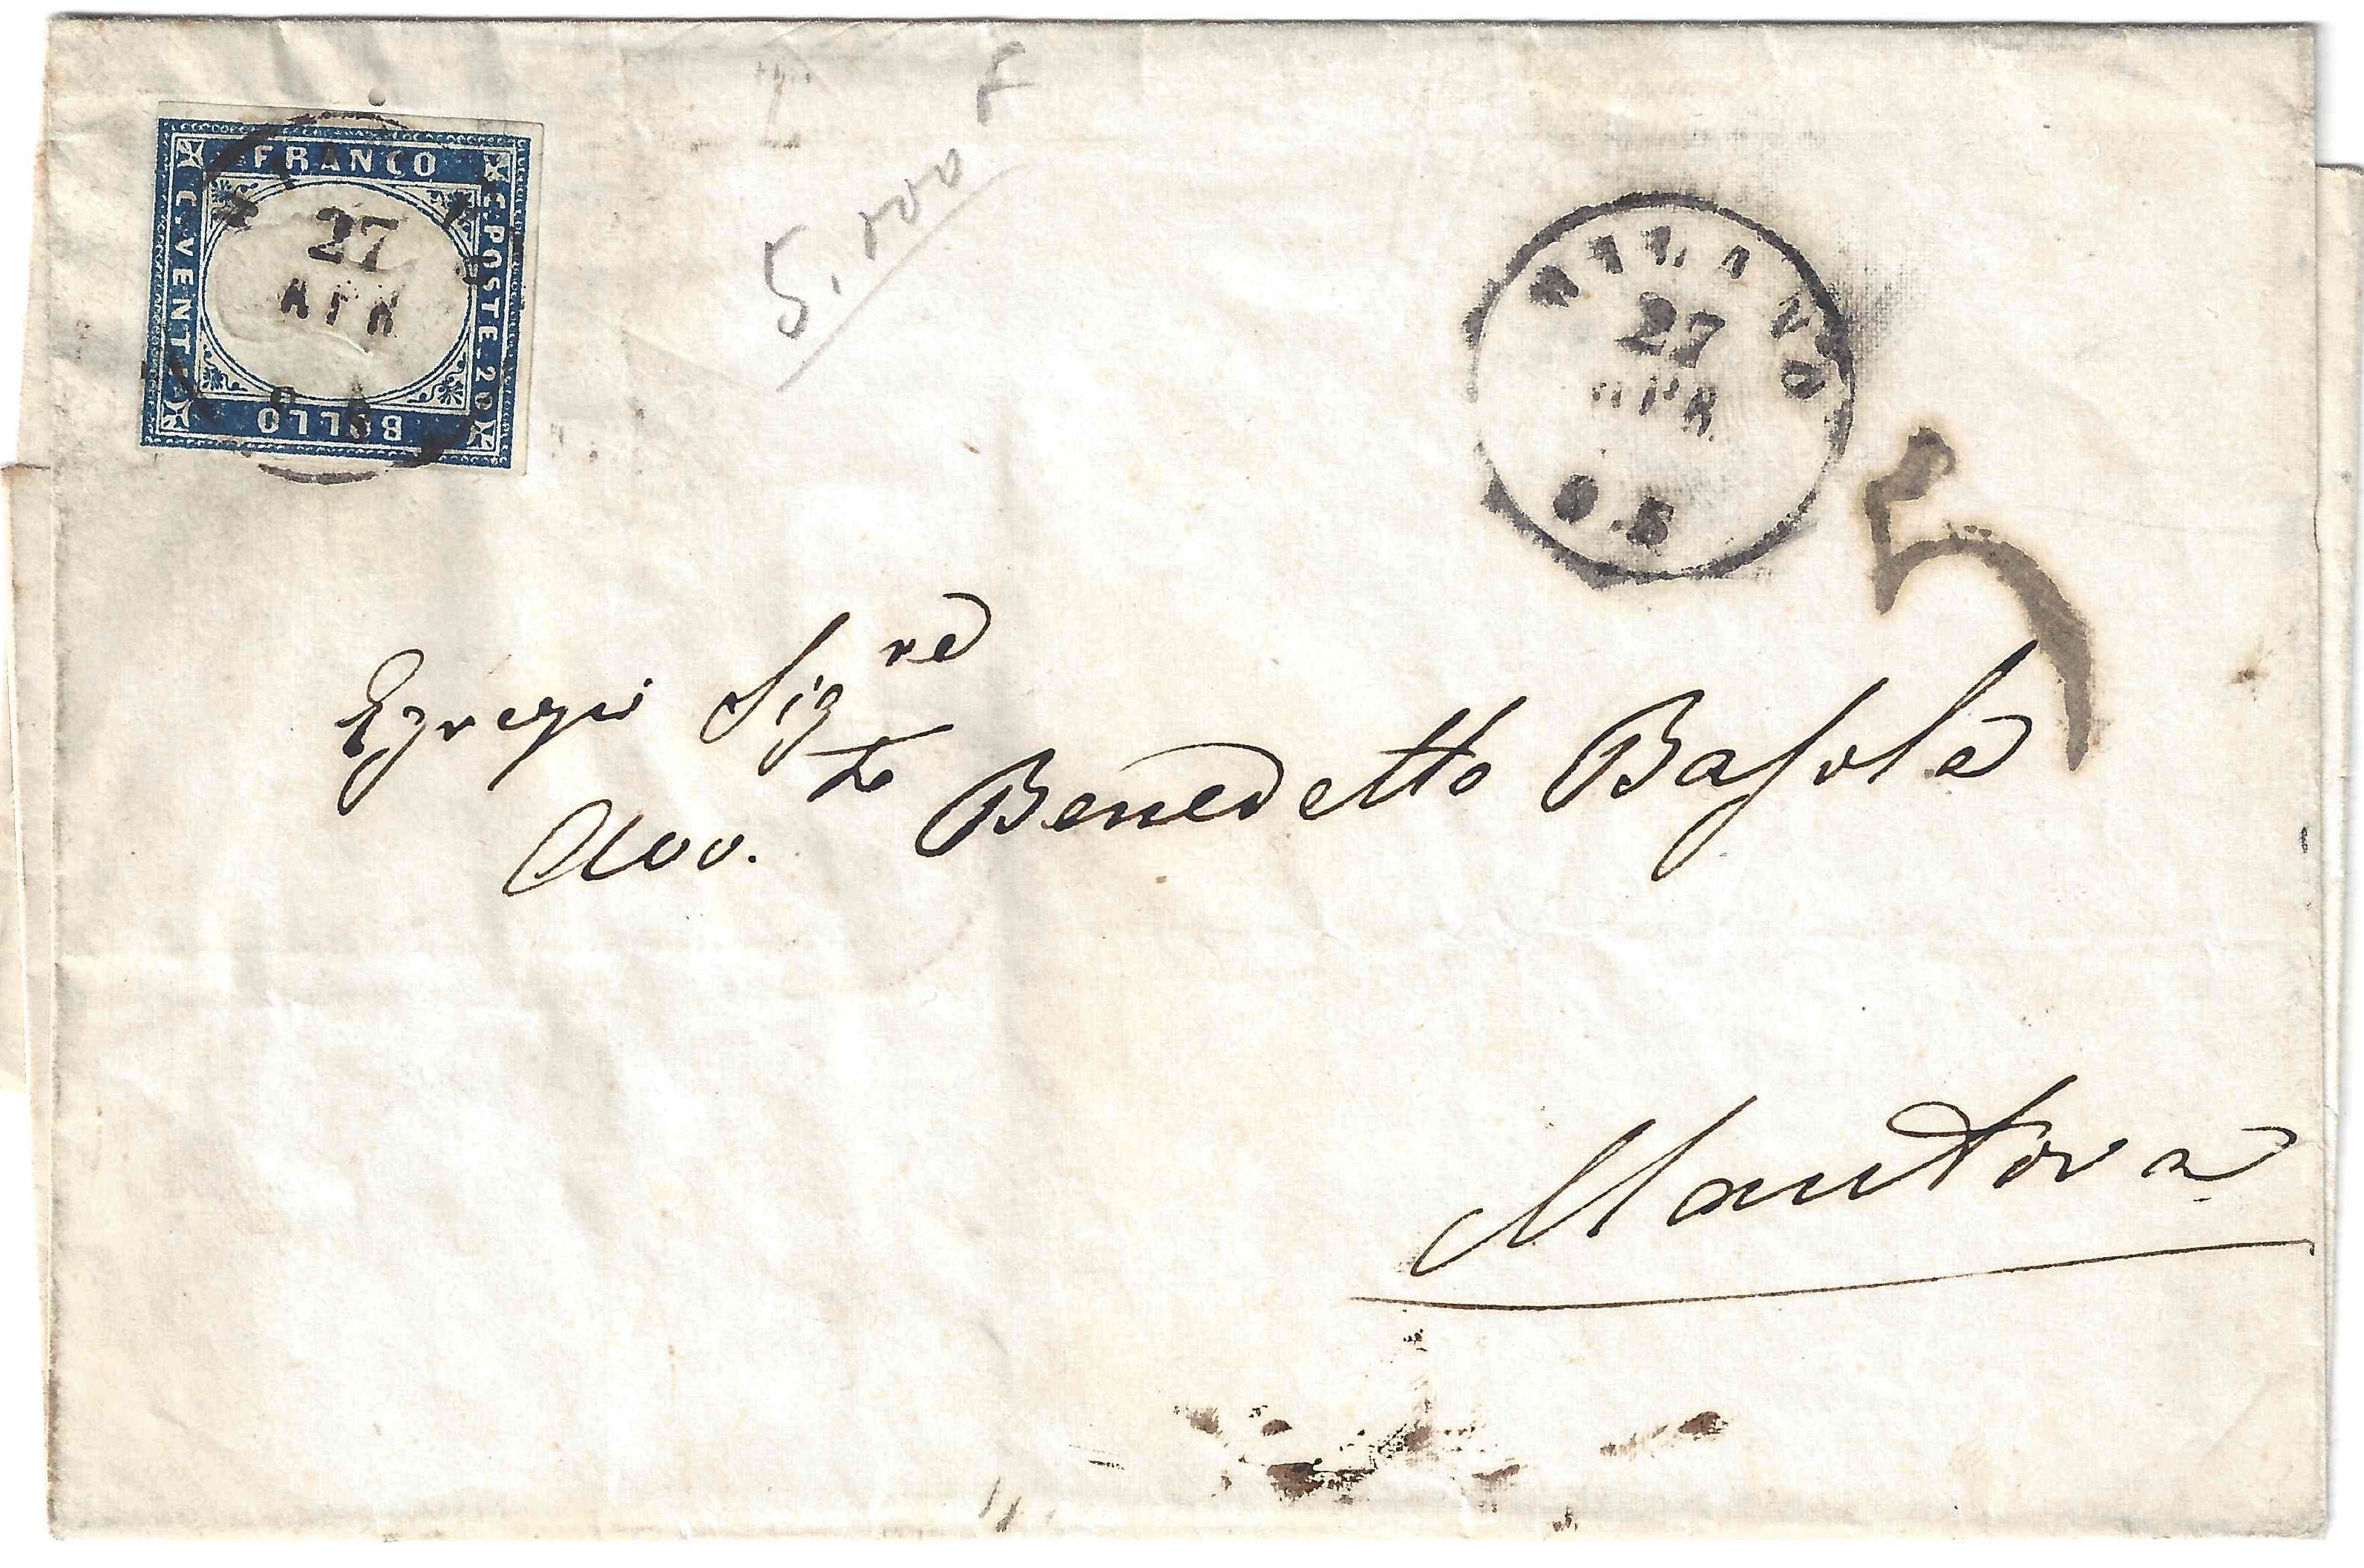 FRANCO
C. VENTI
C. POSTE. 20
BOLLO
27
APR
5.000 F
MILANO
27
APR
5
Egregio Sig.re
Avv.to Benedetto Basola
Mantova